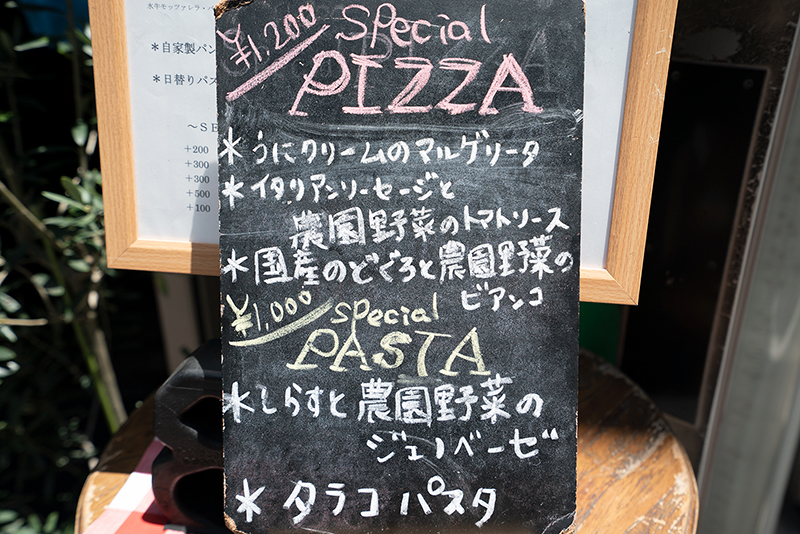 水牛モッツァレラ・
＊自家製パン
＊日替りパス
～SE
+200
+300
+300
+500
+100
¥1,200 special
PIZZA
＊うにクリームのマルゲリータ
＊イタリアンソーセージと
農園野菜のトマトソース
＊国産のどぐろと農園野菜の
ビアンコ
¥1,000 special
PASTA
＊しらすと農園野菜の
ジェノベーゼ
＊タラコパスタ